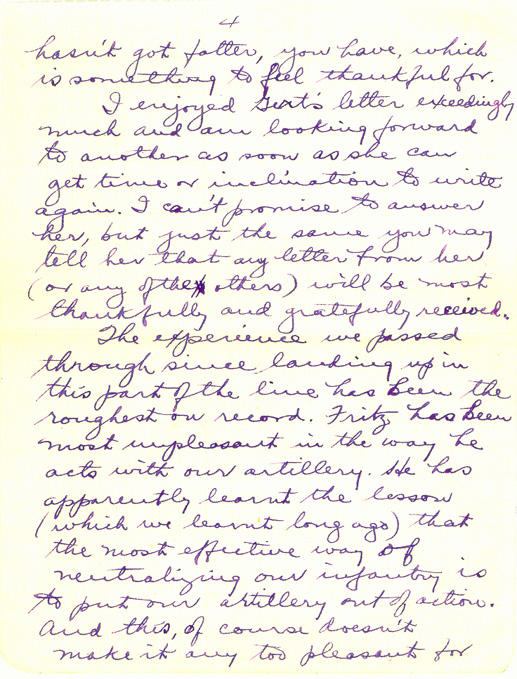 4
hasn't got fatter, you have, which
is something to feel thankful for.
I enjoyed Gert's letter exceedingly
much and am looking forward
to another as soon as she can
get time or inclination to write
again. I can't promise to answer
her, but just the same you may
tell her that any letter from her
(or any of the others) will be most
thankfully and gratefully received.
The experience we passed
through since landing up in
this part of the line has been the
roughest on record. Fritz has been
most unpleasant in the way he
acts with our artillery. He has
apparently learnt the lesson
(which we learnt long ago) that
the most effective way of
neutralizing our infantry is
to put our artillery out of action.
And this, of course doesn't
make it any too pleasant for